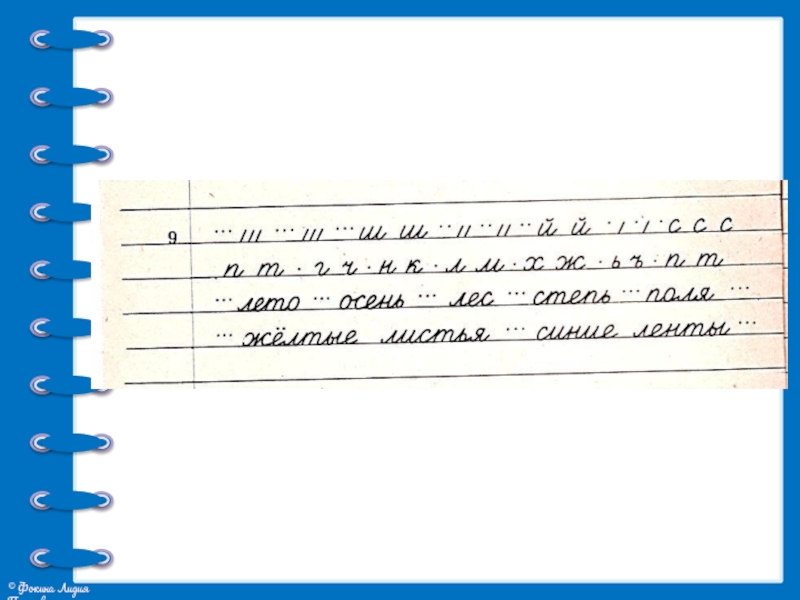 9 ··· ııı ··· ııı ··· ш ш ·· ıı ·· ıı ·· й й · ı · ı · с с с
п т · г ч · н к · л м · х ж · ь ъ · п т
··· лето ··· осень ··· лес ··· степь ··· поля ···
··· жёлтые листья ··· синие ленты ···
© Фокина Лидия